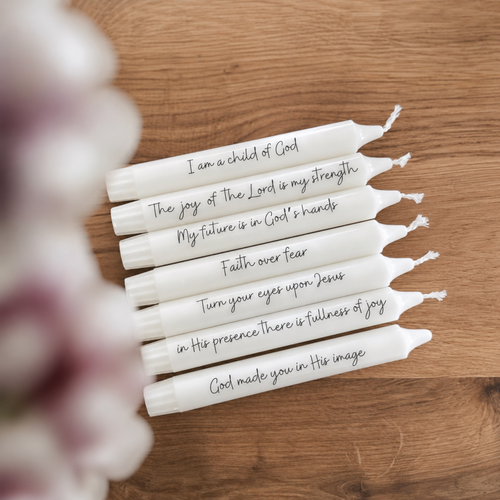 I am a child of God
The joy of the Lord is my strength
My future is in God's hands
Faith over fear
Turn your eyes upon Jesus
in His presence there is fullness of joy
God made you in His image